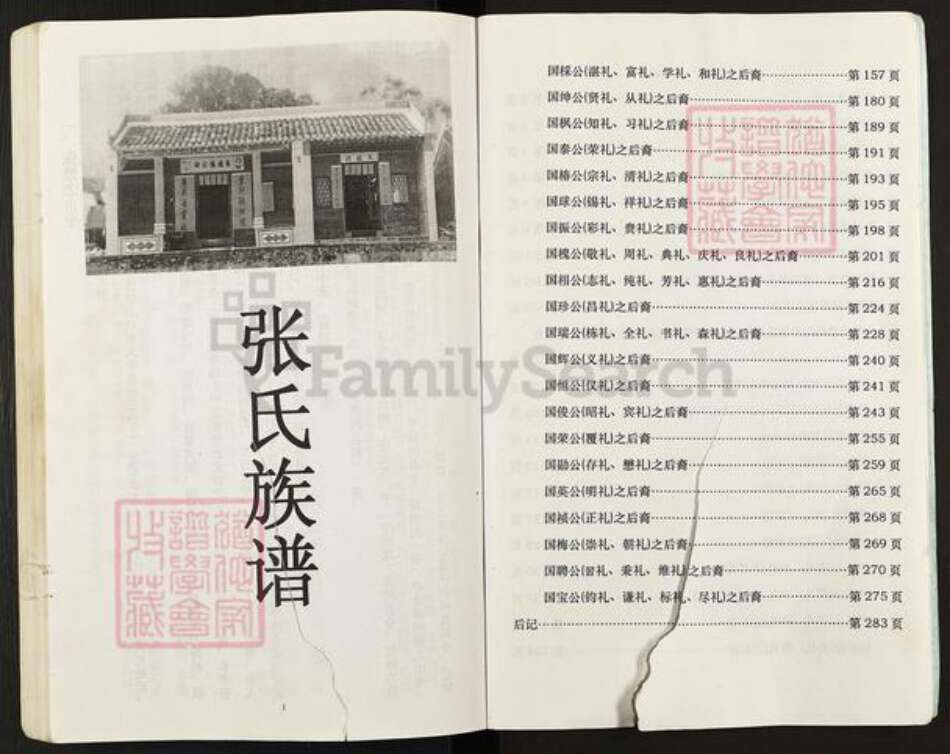 张氏族谱
1
国棌公(湛礼、富礼、学礼、和礼)之后裔……第 157 页
国绅公(贤礼、从礼)之后裔……第 180 页
国枫公(知礼、习礼)之后裔……第 189 页
国泰公(荣礼)之后裔……第 191 页
国椿公(宗礼、清礼)之后裔……第 193 页
国球公(锡礼、祥礼)之后裔……第 195 页
国振公(彩礼、贵礼)之后裔……第 198 页
国槐公(敬礼、周礼、典礼、庆礼、良礼)之后裔……第 201 页
国栢公(志礼、纯礼、芳礼、惠礼)之后裔……第 216 页
国珍公(昌礼)之后裔……第 224 页
国瑞公(栋礼、全礼、书礼、森礼)之后裔……第 228 页
国辉公(义礼)之后裔……第 240 页
国恒公(仪礼)之后裔……第 241 页
国俊公(昭礼、宾礼)之后裔……第 243 页
国荣公(覆礼)之后裔……第 255 页
国勋公(存礼、懋礼)之后裔……第 259 页
国英公(明礼)之后裔……第 265 页
国祯公(正礼)之后裔……第 268 页
国梅公(崇礼、朝礼)之后裔……第 269 页
国聘公(習礼、秉礼、维礼)之后裔……第 270 页
国宝公(钧礼、谦礼、标礼、尽礼)之后裔……第 275 页
后记……第 283 页
FamilySearch